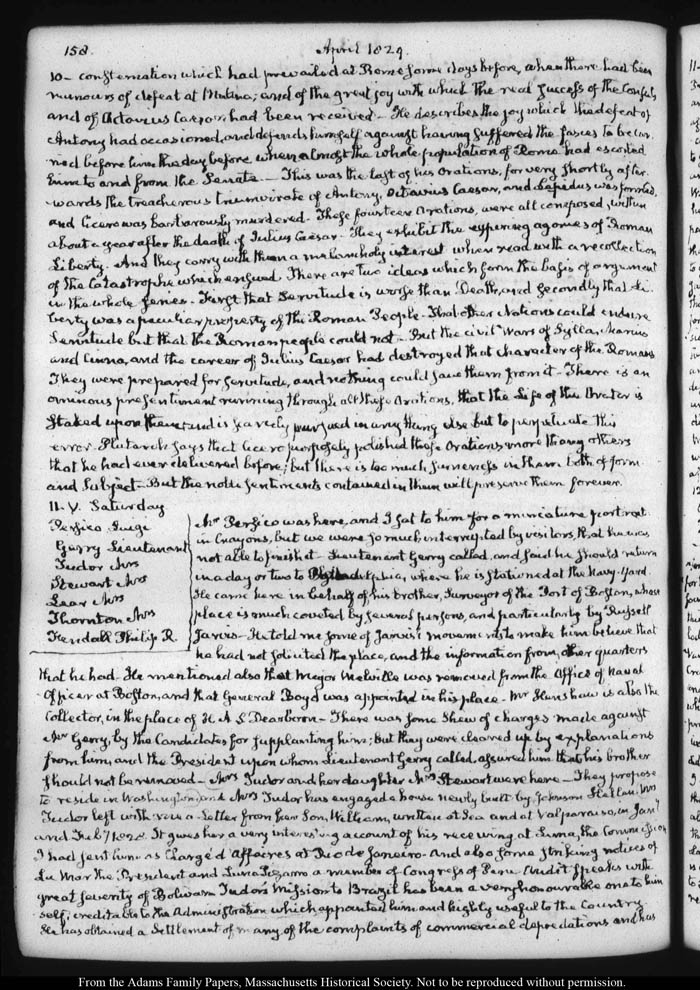 158.
April 1829.
10 — consternation which had prevailed at Rome some days before, when there had been
rumours of defeat at Mutina; and of the great joy with which the real success of the Consuls,
and of Octavius Caesar, had been received — He describes the joy which the defeat of
Antony had occasioned, and defends himself against having suffered the fasces to be car-
ried before him the day before, when almost the whole population of Rome had escorted
him to and from the Senate. — This was the last of his orations, for very shortly after-
wards the treacherous triumvirate of Antony, Octavius Caesar, and Lepidus was formed,
and Cicero was barbarously murdered — These fourteen Orations, were all composed, within
about a year after the death of Julius Caesar — They exhibit the expiring agonies of Roman
Liberty. And they carry with them a melancholy interest when read with a recollection
of the Catastrophe which ensued. There are two ideas which form the basis of argument
in the whole series. First that Servitude is worse than Death, and secondly that Li-
berty was a peculiar property of the Roman People. That other Nations could endure
Servitude but that the Roman people could not — But the civil Wars of Sylla, Marius
and Cinna, and the career of Julius Caesar had destroyed that character of the Romans
They were prepared for servitude, and nothing could save them from it — There is an
ominous presentiment running through all these Orations, that the Life of the Orator is
staked upon them, and is scarcely in any thing else but to perpetuate this
error. Plutarch says that Cicero purposely polished these Orations more than others
that he had ever delivered before; but there is too much sameness in them both of form
and Subject — But the noble sentiments contained in them will preserve them forever.
11. V. Saturday
Persico Luigi
Gerry Lieutenant
Tudor Mrs
Stewart Mrs
Lear Mrs
Thornton Mrs
Fendall Philip R.
Mr Persico was here, and I sat to him for a miniature portrait
in Crayons, but we were so much interrupted by visitors, that he was
not able to finish it — Lieutenant Gerry called, and said he should return
in a day or two to Philadelphia, where he is stationed at the Navy-Yard.
He came here in behalf of his brother, Surveyor of the Port of Boston, whose
place is much coveted by several persons, and particularly by Russell
Jarvis — He told me some of Jarvis's movements to make him believe that
he had not solicited the place, and the information from other quarters
that he had. He mentioned also that Major Melville was removed from the Office of Naval
Officer at Boston, and that General Boyd was appointed in his place — Mr Henshaw is also the
Collector, in the place of H. A. S. Dearborn — There was some shew of charges made against
Mr Gerry, by the Candidates for supplanting him; but they were cleared up by explanations
from him, and the President upon whom Lieutenant Gerry called, assured him that his brother
should not be removed — Mrs Tudor and her daughter Mrs Stewart were here — They propose
to reside in Washington, and Mrs Tudor has engaged a house newly built by Johnson Hellen. Mrs
Tudor left with me a Letter from her Son, William, written at Sea and at Valparaiso, in Jany
and Feby 1828. It gives her a very interesting account of his receiving at Lima, the Commission
I had sent him as Chargé d'Affaires at Rio de Janeiro — And also some striking notices of
La Mar the President and Luna Pizarro a member of Congress of Peru. And it speaks with
great severity of Bolivar. Tudor's Mission to Brazil has been a very honourable one to him
self; creditable to the Administration which appointed him and highly useful to the Country
He has obtained a Settlement of many of the complaints of commercial depredations and has
From the Adams Family Papers, Massachusetts Historical Society. Not to be reproduced without permission.